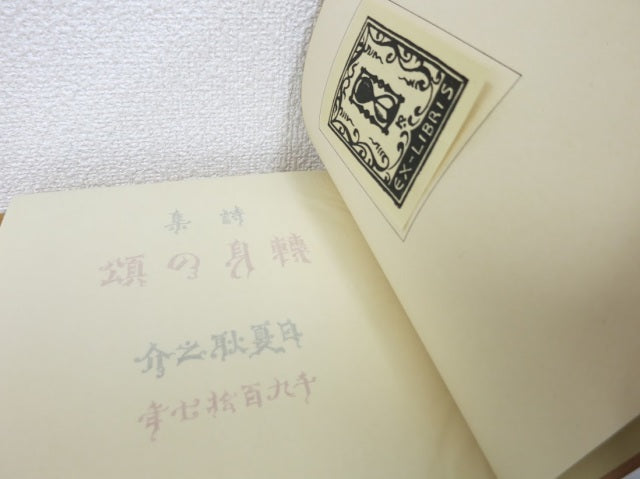 EX-LIBRIS
詩集
轉身の頌
日夏耿之介
千九百拾七年